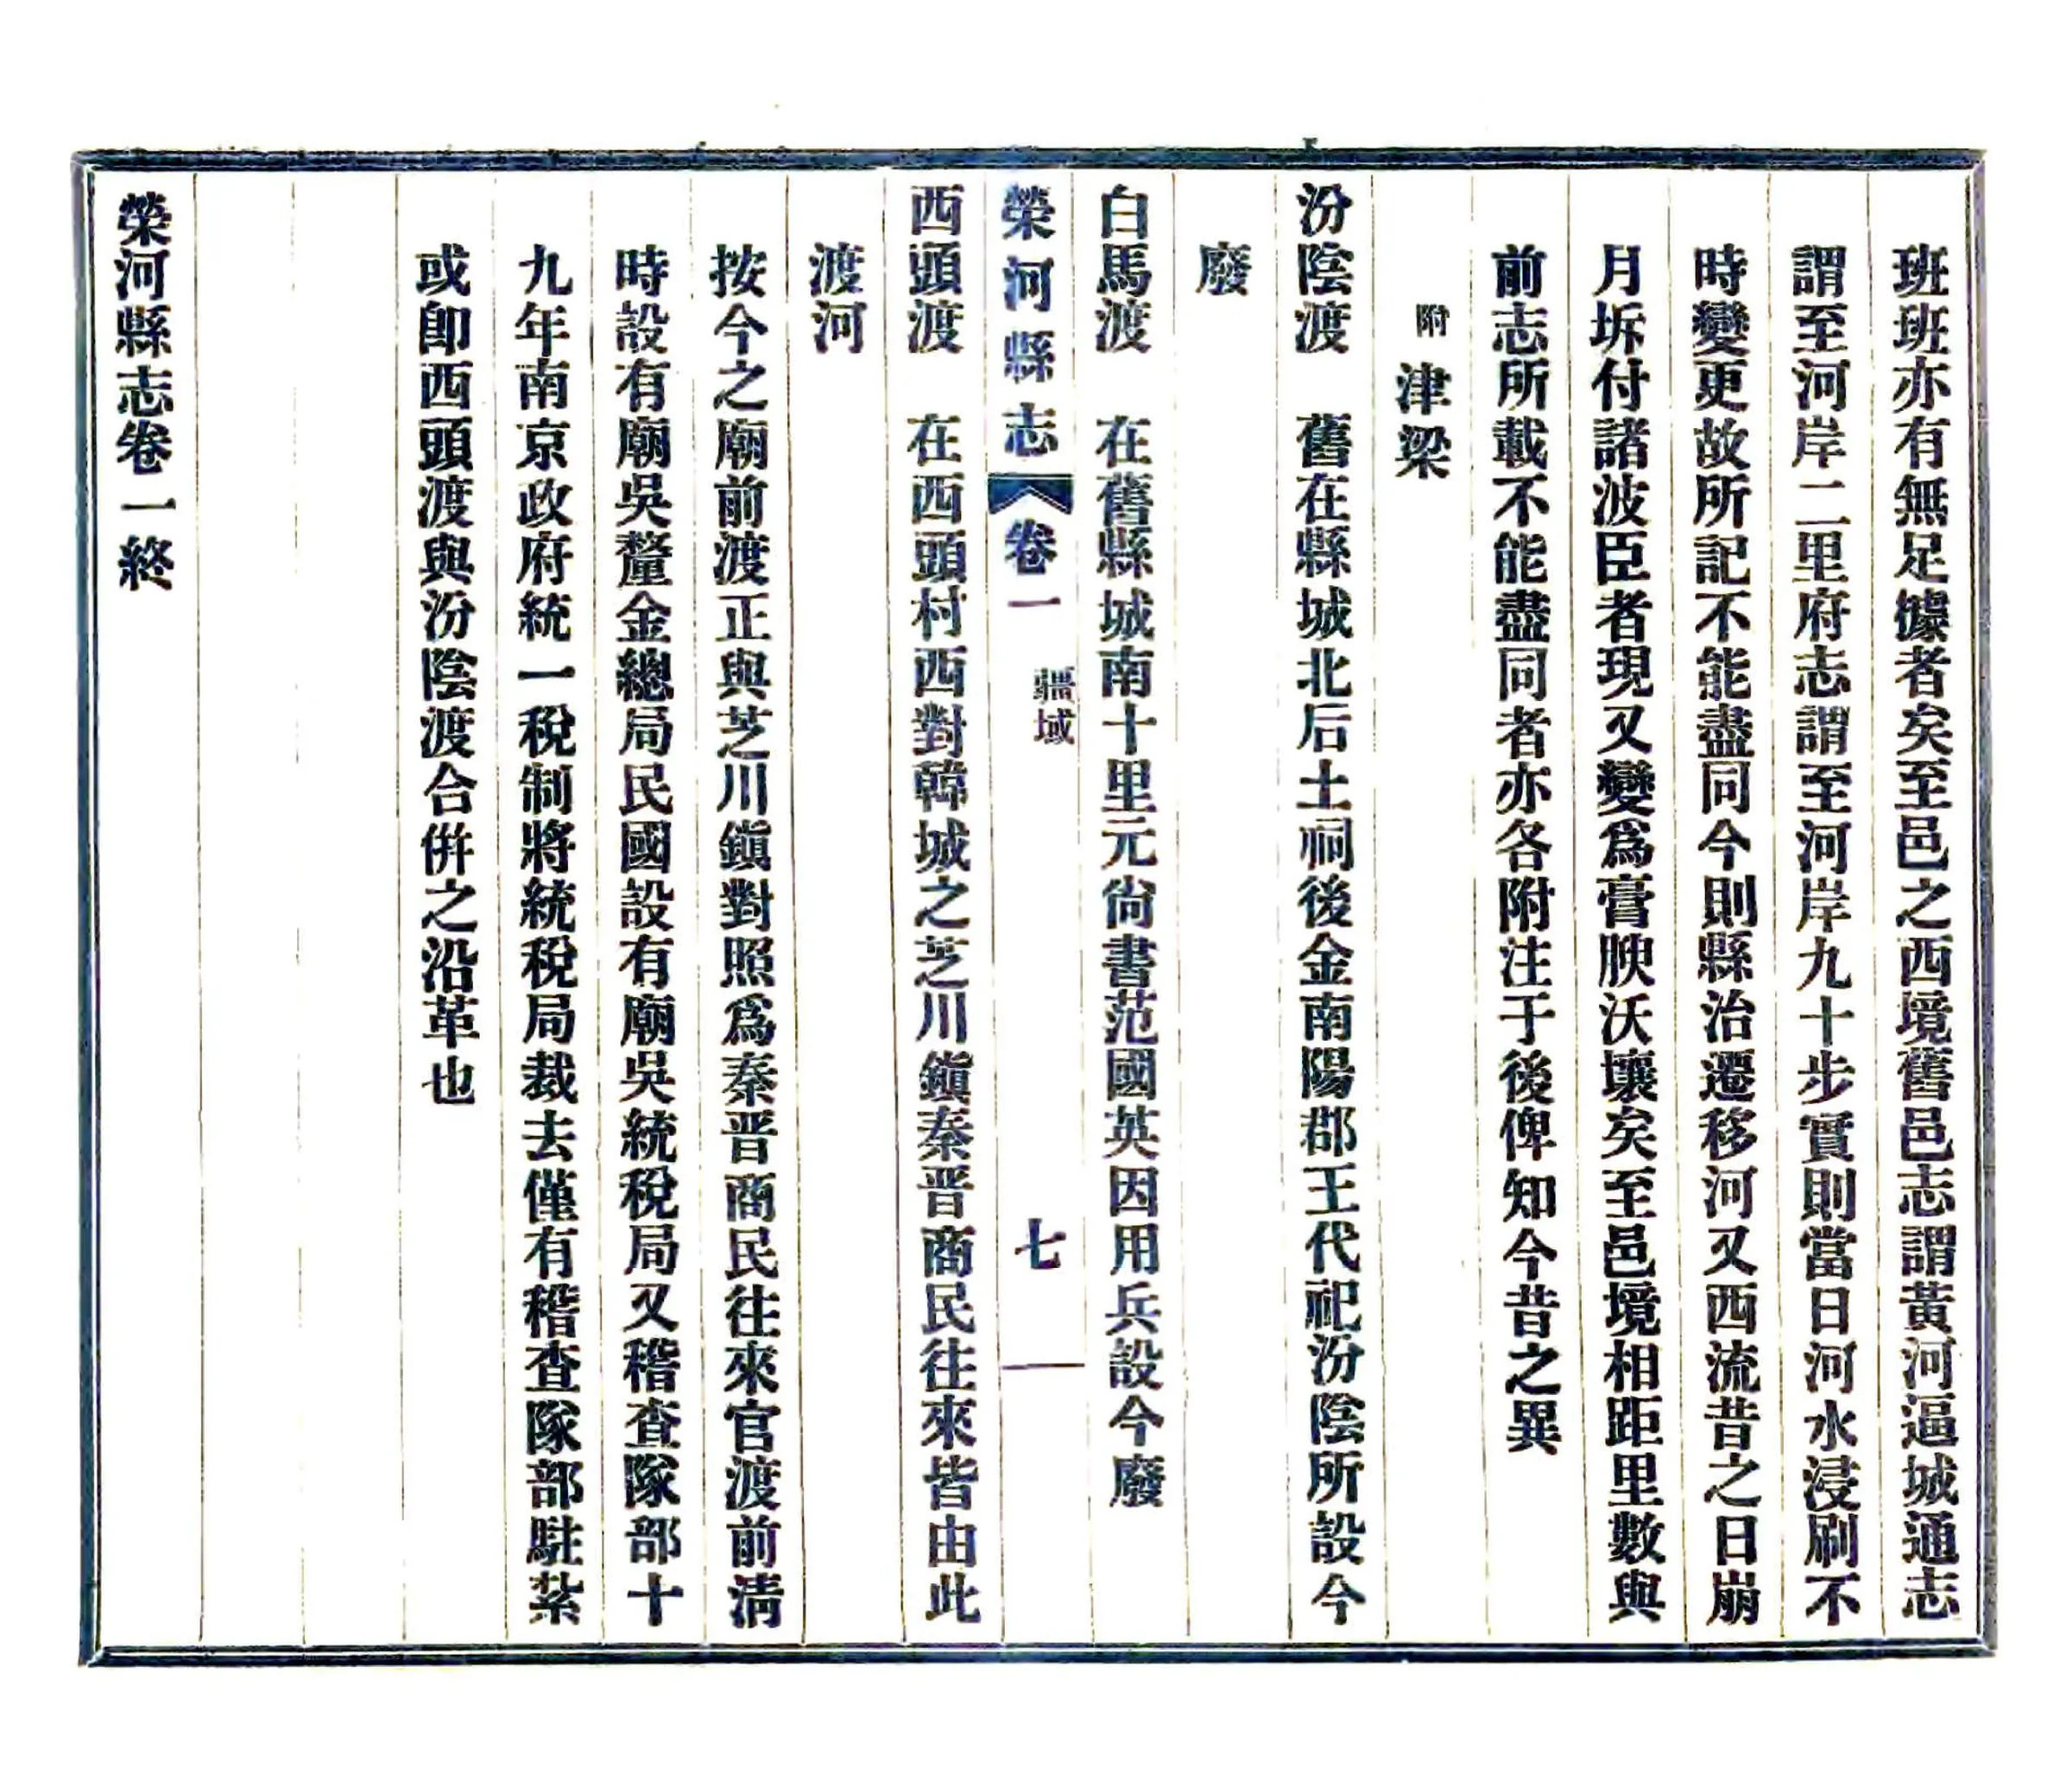 班班亦有無足據者矣至邑之西境舊邑志謂黃河逼城通志
謂至河岸二里府志謂至河岸九十步實則當日河水浸刷不
時變更故所記不能盡同今則縣治遷移河又西流昔之日崩
月坼付諸波臣者現又變爲膏腴沃壤矣至邑境相距里數與
前志所載不能盡同者亦各附注于後俾知今昔之異
附 津梁
汾陰渡 舊在縣城北后土祠後金南陽郡王代祀汾陰所設今
廢
白馬渡 在舊縣城南十里元尙書范國英因用兵設今廢
榮河縣志 卷一 疆域 七
西頭渡 在西頭村西對韓城之芝川鎭秦晋商民往來皆由此
渡河
按今之廟前渡正與芝川鎭對照爲秦晋商民往來官渡前淸
時設有廟吳釐金總局民國設有廟吳統稅局又稽查隊部十
九年南京政府統一稅制將統稅局裁去僅有稽查隊部駐紮
或卽西頭渡與汾陰渡合倂之沿革也
榮河縣志卷一終